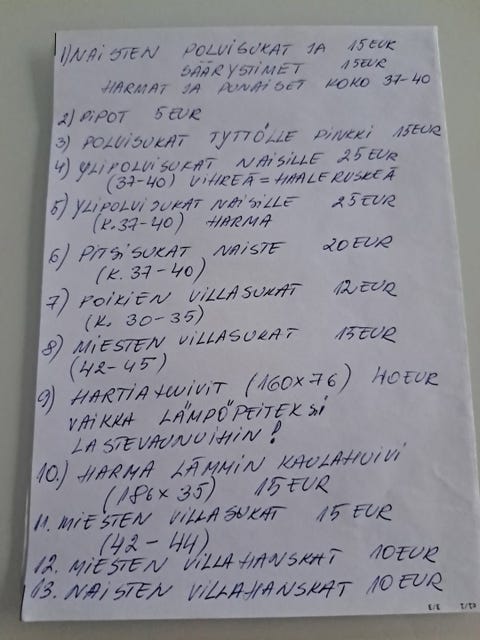 1) NAISTEN POLVISUKAT JA 15 EUR
SÄÄRYSTIMET 15EUR
HARMAT JA PUNAISET KOKO 37-40
2) PIPOT 5 EUR
3) POLVISUKAT TYTTÖLLE PINKKI 15EUR
4) YLIPOLVISUKAT NAISILLE 25 EUR
(37-40) VIHREÄ = HAALERUSKEÄ
5) YLIPOLVISUKAT NAISILLE 25 EUR
(K.37-40) HARMA
6) PITSISUKAT NAISTE 20 EUR
(K. 37-40)
7) POIKIEN VILLASUKAT 12 EUR
(K. 30-35)
8) MIESTEN VILLASUKAT 15 EUR
(42-45)
9) HARTIAHUIVIT (160x76) 40 EUR
VAIKKA LÄMPÖPEITEKSI
LASTEVAUNUIHIN!
10.) HARMA LÄMMIN KAULAHUIVI
(186 x 35) 15 EUR
11. MIESTEN VILLASUKAT 15 EUR
(42-44)
12. MIESTEN VILLAHANSKAT 10 EUR
13. NAISTEN VILLAHANSKAT 10 EUR